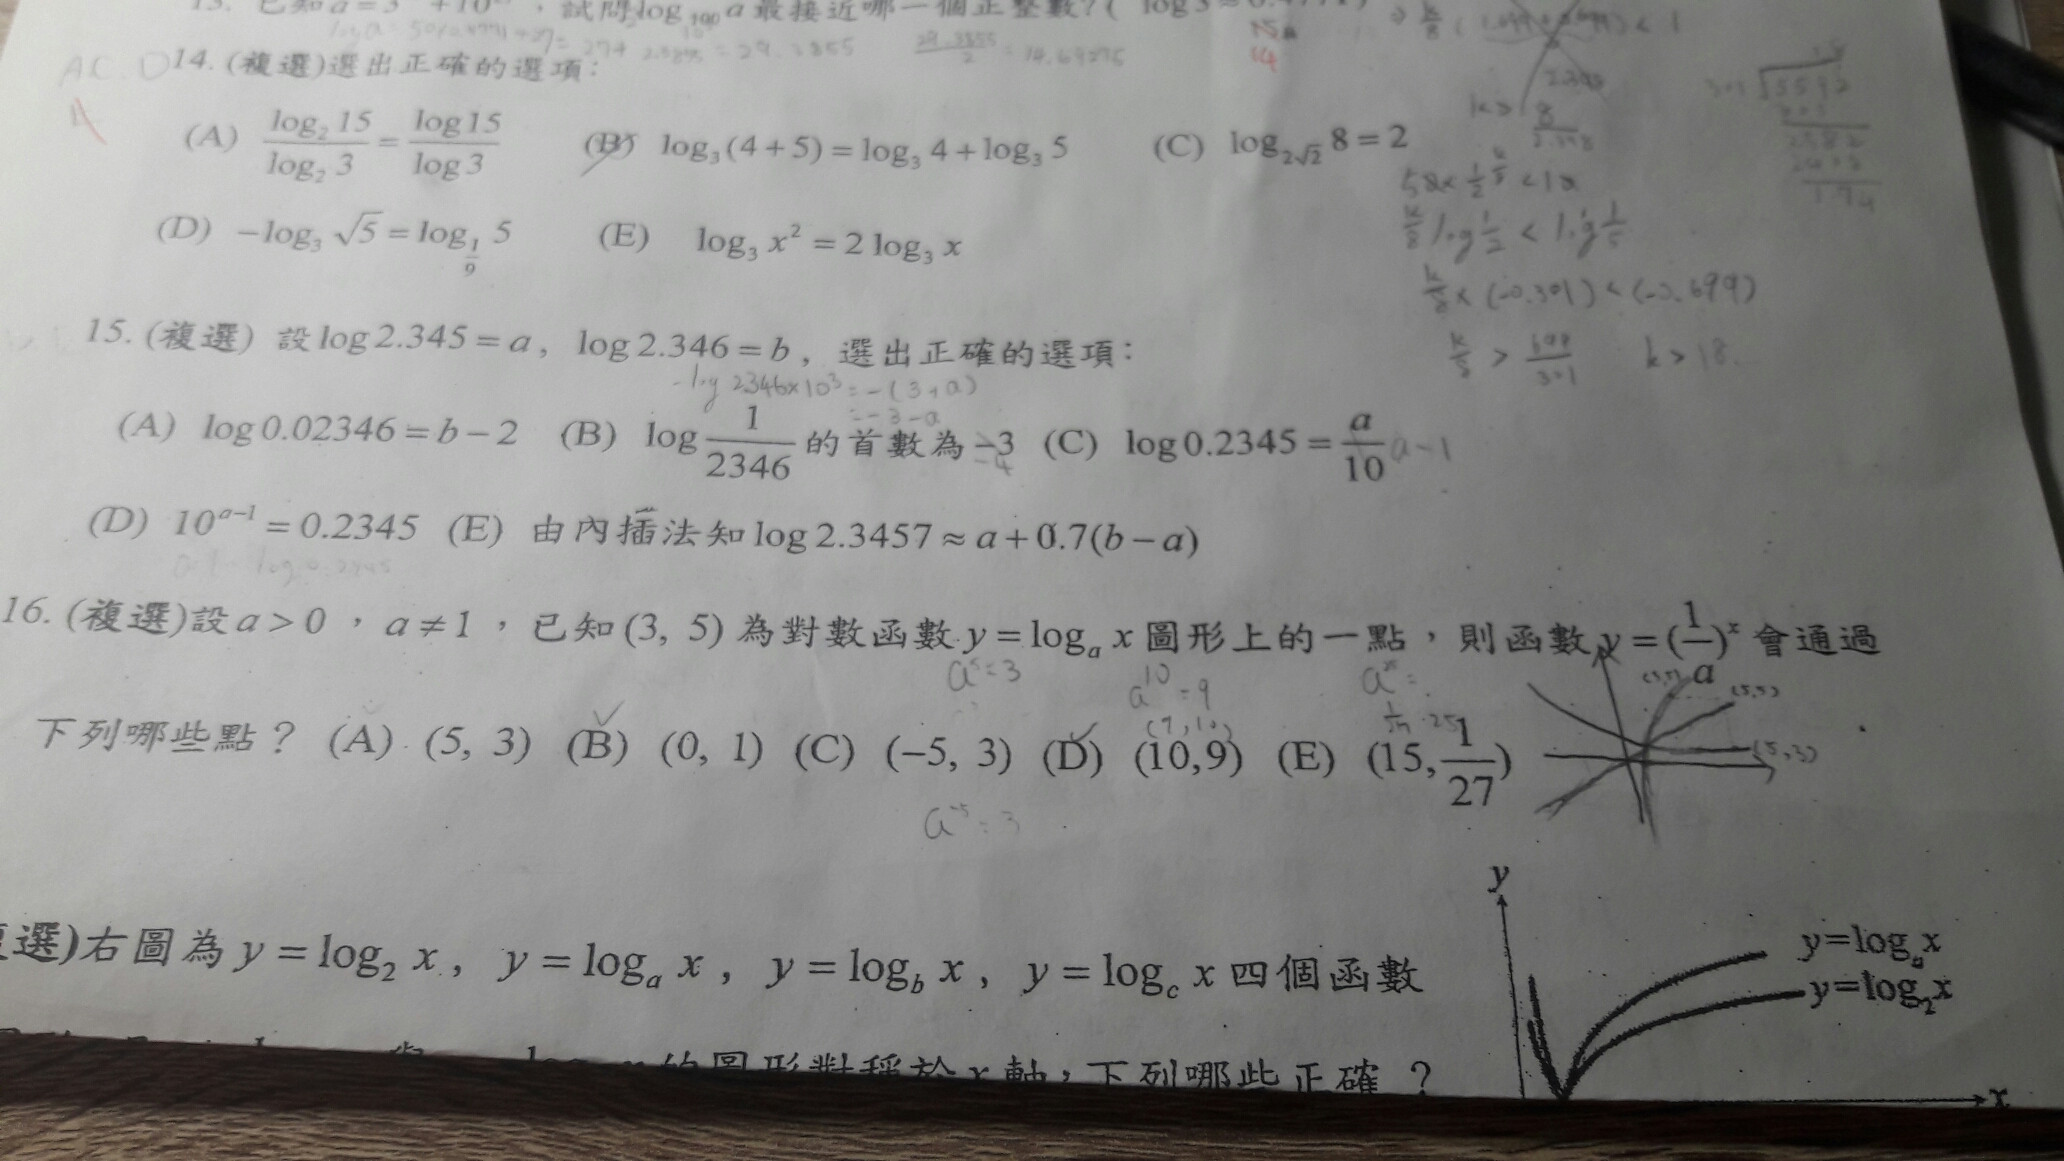 試問log₁₀₀ a 最接近哪一個正整數?(
29.3855
29.3855/2 = 14.69275
14
A C. D 14. (複選)選出正確的選項：
(A) log₂ 15/log₂ 3 = log 15/log 3 (B) log₃(4+5) = log₃ 4 + log₃ 5 (C) log_{2√2} 8 = 2
(D) −log₃ √5 = log_{1/9} 5 (E) log₃ x² = 2 log₃ x
k/8 × (-0.301) < (-0.699)
k/8 > 699/301 k > 18.
15. (複選) 設 log 2.345 = a，log 2.346 = b，選出正確的選項：
-log 2346×10³ = -(3+a)
= -3-a
(A) log 0.02346 = b − 2 (B) log 1/2346 的首數為 −3 (C) log 0.2345 = a/10 a-1
-4
(D) 10^{a−1} = 0.2345 (E) 由內插法知 log 2.3457 ≈ a + 0.7(b − a)
16. (複選)設 a > 0，a ≠ 1，已知 (3, 5) 為對數函數 y = logₐ x 圖形上的一點，則函數 y = (1/a)^x 會通過
a⁵ = 3 a¹⁰ = 9
下列哪些點？ (A) (5, 3) (B) (0, 1) (C) (−5, 3) (D) (10,9) (E) (15, 1/27)
a⁻⁵ = 3
(5,3)
選)右圖為 y = log₂ x，y = logₐ x，y = log_b x，y = log_c x 四個函數
的圖形對稱於 x 軸，下列哪些正確？
y
y=log x
y=log₂x
x